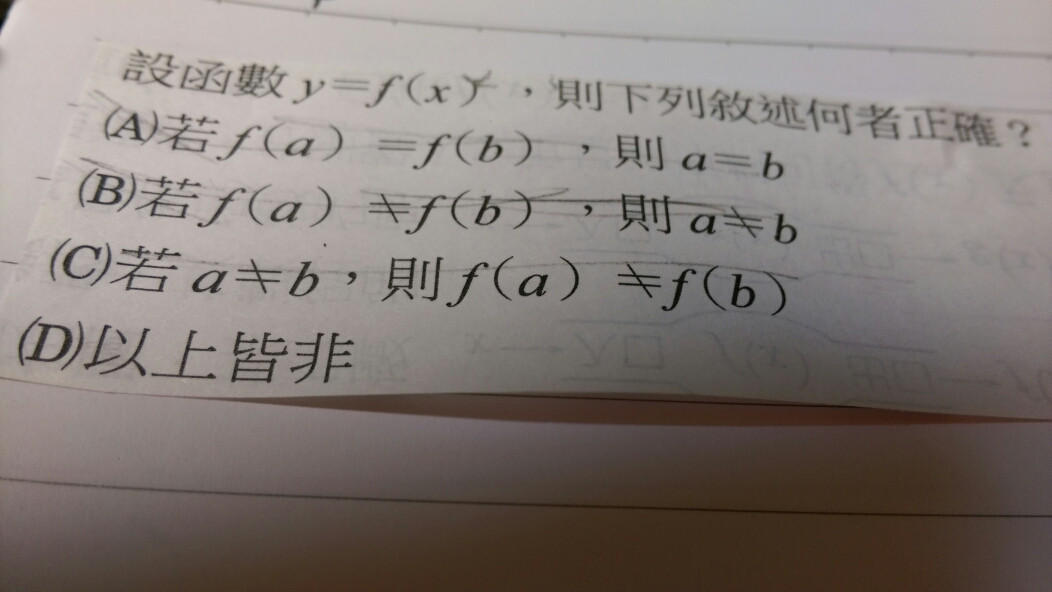 設函數 y=f(x)，則下列敘述何者正確？
(A)若 f(a) =f(b)，則 a=b
(B)若 f(a) ≠f(b)，則 a≠b
(C)若 a≠b，則 f(a) ≠f(b)
(D)以上皆非